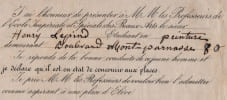 J'ai l'honneur de présenter à M.M. les Professeurs de
l'École Impériale et Spéciale des Beaux-Arts le sieur
Henry Lepind Étudiant en peinture
demeurant Boulevard Montparnasse 80
Je réponds de la bonne conduite de ce jeune homme et
je déclare qu'il est en état de concourir aux places.
Je prie M.M. les Professeurs de vouloir bien l'admettre
comme aspirant à une place d'Élève